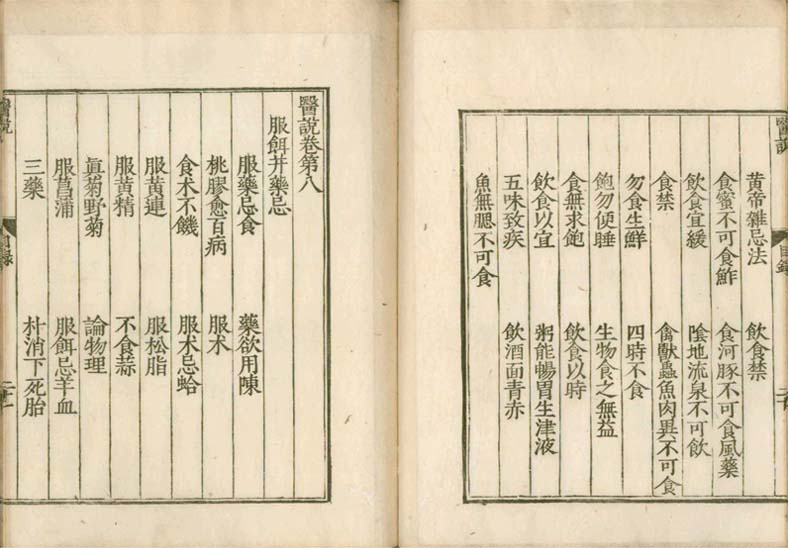 醫說
目錄
黃帝雜忌法 飲食禁
食蜜不可食鮓 食河豚不可食風藥
飲食宜緩 陰地流泉不可飲
食禁 禽獸蟲魚肉異不可食
勿食生鮮 四時不食
飽勿便睡 生物食之無益
食無求飽 飲食以時
飲食以宜 粥能暢胃生津液
五味致疾 飲酒面青赤
魚無腮不可食
醫說卷第八
服餌并藥忌
服藥忌食 藥欲用陳
桃膠愈百病 服朮
食朮不饑 服朮忌蛤
服黃連 服松脂
服黃精 不食蒜
眞菊野菊 論物理
服菖蒲 服餌忌羊血
三藥 朴消下死胎
醫說
目錄
二十一